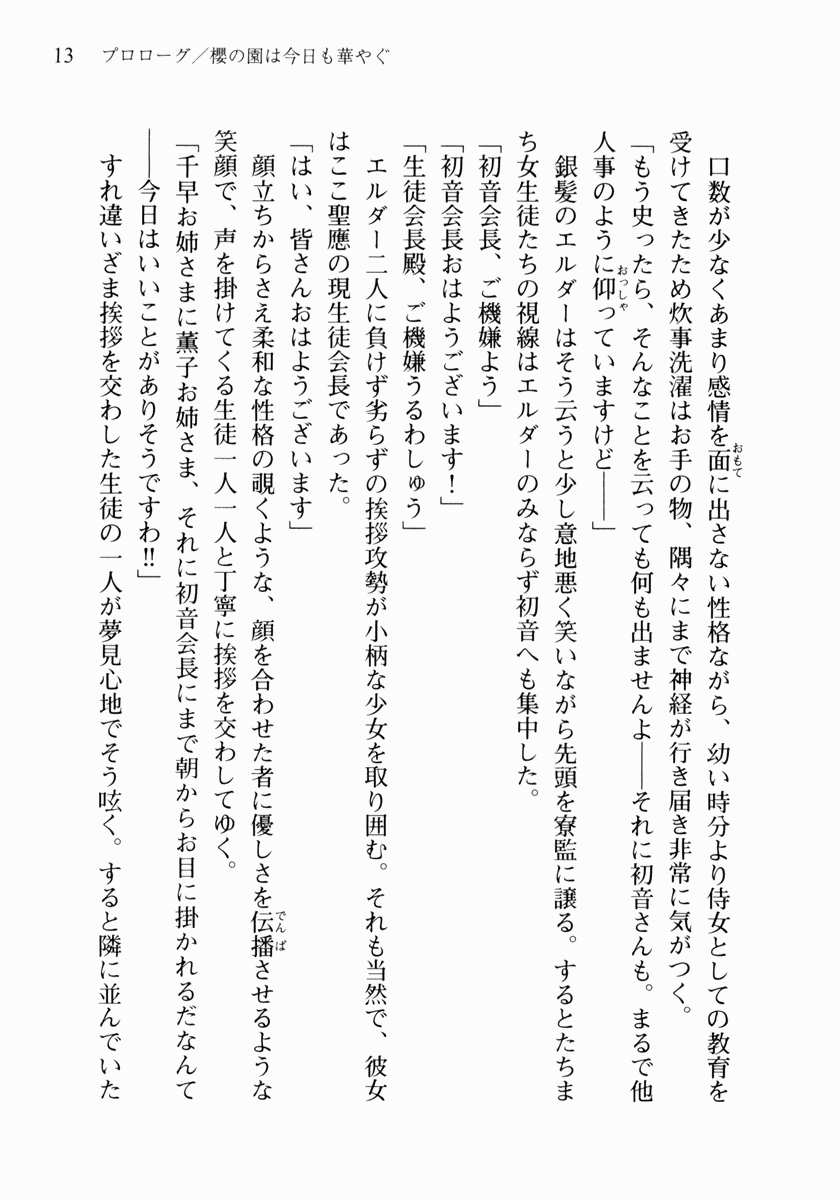 13 プロローグ／櫻の園は今日も華やぐ
口数が少なくあまり感情を面に出さない性格ながら、幼い時分より侍女としての教育を
受けてきたため炊事洗濯はお手の物、隅々にまで神経が行き届き非常に気がつく。
「もう史ったら、そんなことを云っても何も出ませんよ――それに初音さんも。まるで他
人事のように仰っていますけど――」
銀髪のエルダーはそう云うと少し意地悪く笑いながら先頭を寮監に譲る。するとたちま
ち女生徒たちの視線はエルダーのみならず初音へも集中した。
「初音会長、ご機嫌よう」
「初音会長おはようございます！」
「生徒会長殿、ご機嫌うるわしゅう」
エルダー二人に負けず劣らずの挨拶攻勢が小柄な少女を取り囲む。それも当然で、彼女
はここ聖應の現生徒会長であった。
「はい、皆さんおはようございます」
顔立ちからさえ柔和な性格の覗くような、顔を合わせた者に優しさを伝播させるような
笑顔で、声を掛けてくる生徒一人一人と丁寧に挨拶を交わしてゆく。
「千早お姉さまに薫子お姉さま、それに初音会長にまで朝からお目に掛かれるだなんて
――今日はいいことがありそうですわ!!」
すれ違いざま挨拶を交わした生徒の一人が夢見心地でそう呟く。すると隣に並んでいた